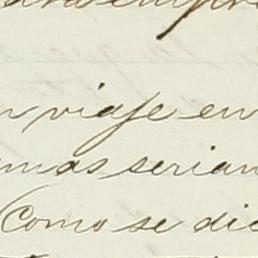 viaje en
mas serian
(Como se dic